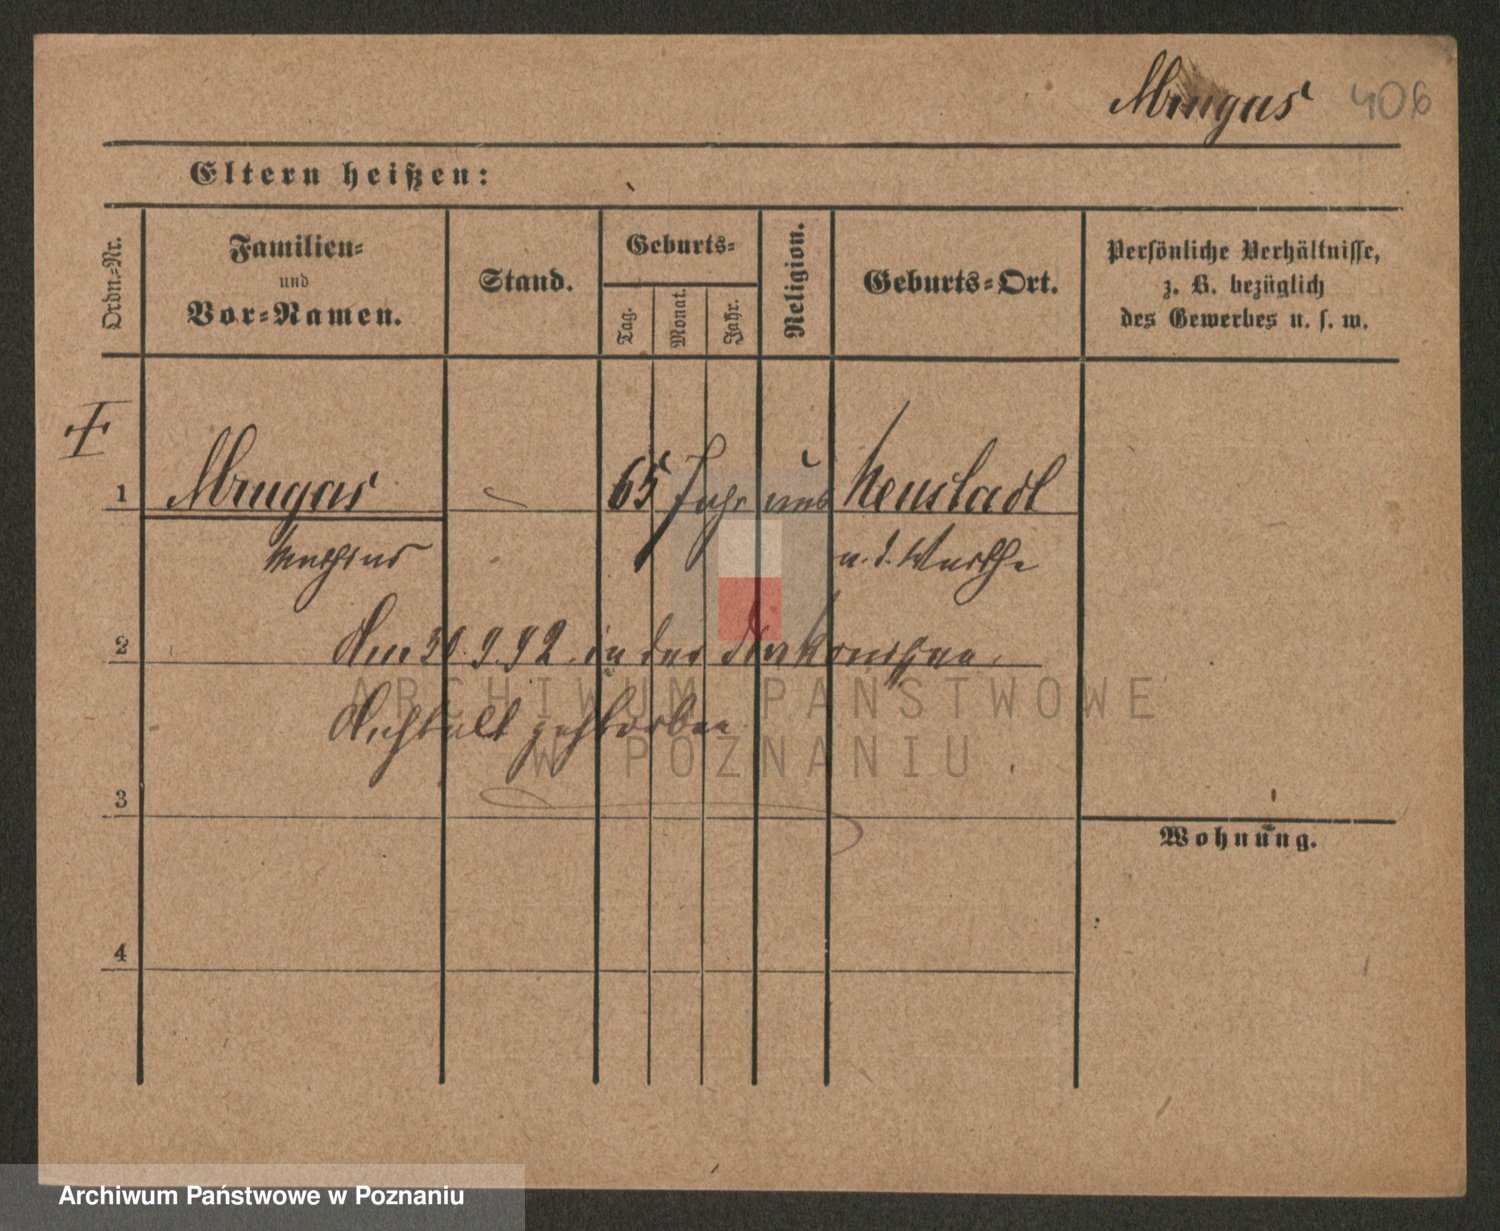 Mrugas 406
Eltern heißen:
Ordn.-Nr.
Familien-
und
Vor-Namen.
Stand.
Geburts-
Tag.
Monat.
Jahr.
Religion.
Geburts-Ort.
Persönliche Verhältnisse,
z. B. bezüglich
des Gewerbes u. s. w.
1 Mrugas 65 Jahr Neustadt
Mathias a. d. Warthe
2 Am 30.9.92. in der Diakonissen
Anstalt gestorben
3
Wohnung.
4
ARCHIWUM PAŃSTWOWE
W POZNANIU
Archiwum Państwowe w Poznaniu